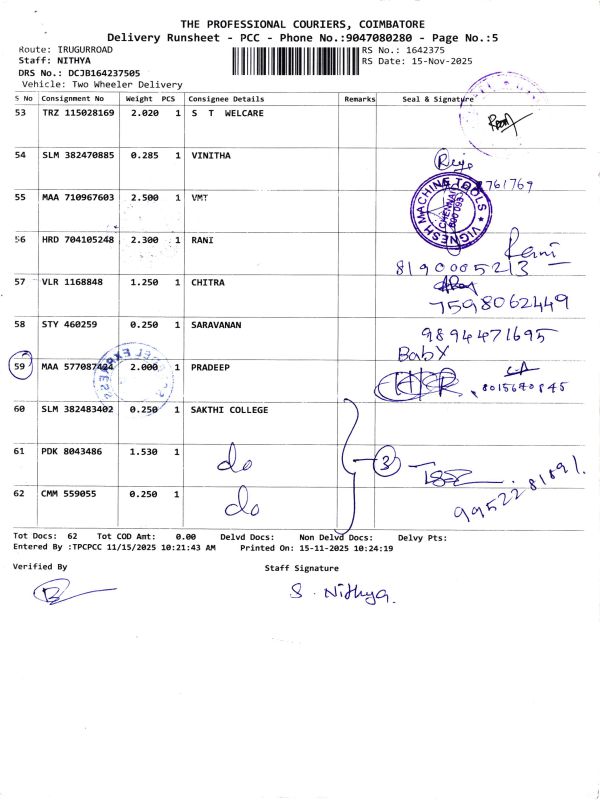 THE PROFESSIONAL COURIERS, COIMBATORE
Delivery Runsheet - PCC - Phone No.:9047080280 - Page No.:5
Route: IRUGURROAD RS No.: 1642375
Staff: NITHYA RS Date: 15-Nov-2025
DRS No.: DCJB164237505
Vehicle: Two Wheeler Delivery
S No Consignment No Weight PCS Consignee Details Remarks Seal & Signature
53 TRZ 115028169 2.020 1 S T WELCARE
54 SLM 382470885 0.285 1 VINITHA
761769
55 MAA 710967603 2.500 1 VMT
VIGNESH MACHINE TOOLS
CHENNAI
600 093
56 HRD 704105248 2.300 1 RANI Rani
8190005213
57 VLR 1168848 1.250 1 CHITRA
7598062449
58 STY 460259 0.250 1 SARAVANAN 9894471695
Baby
59 MAA 577087424 2.000 1 PRADEEP
8015640845
60 SLM 382483402 0.250 1 SAKTHI COLLEGE
61 PDK 8043486 1.530 1 do 3
62 CMM 559055 0.250 1 do 9952281891.
Tot Docs: 62 Tot COD Amt: 0.00 Delvd Docs: Non Delvd Docs: Delvy Pts:
Entered By :TPCPCC 11/15/2025 10:21:43 AM Printed On: 15-11-2025 10:24:19
Verified By Staff Signature
S. Nithya.